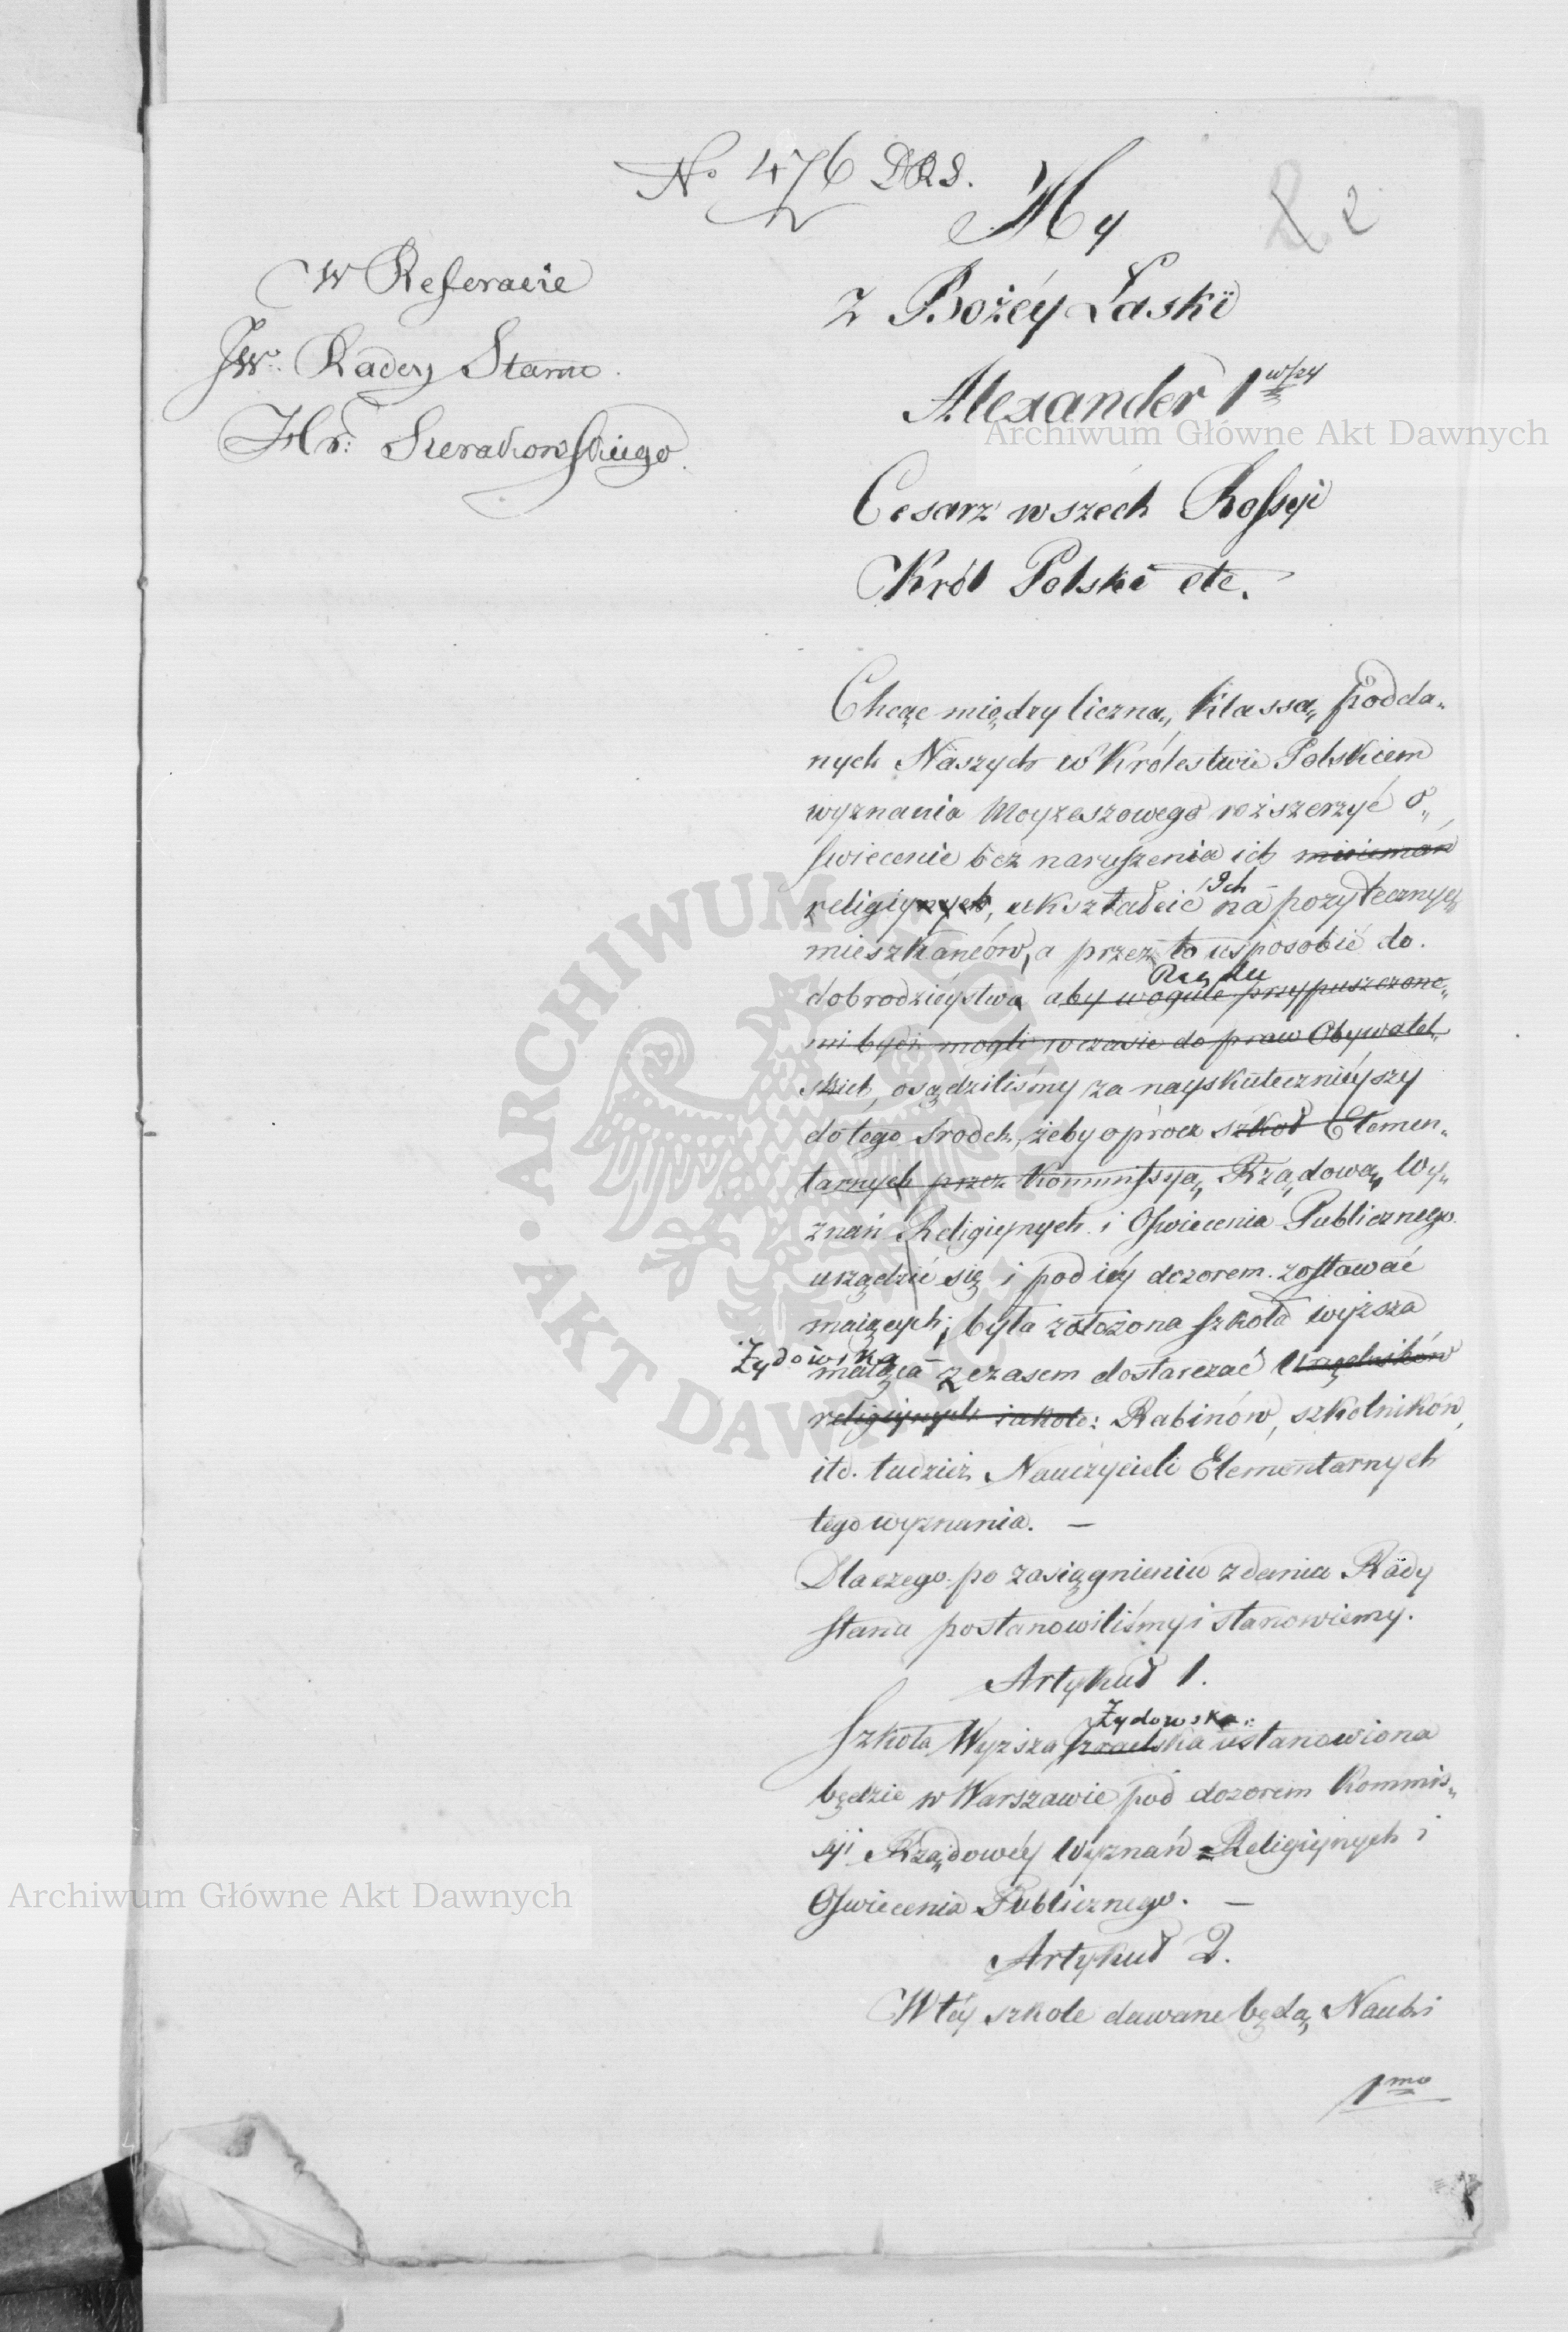 No 476 DRS.
2 2
W Referacie
JW. Radcy Stanu
Hr: Sierakowskiego.
My
z Bożéy Łaski
Alexander 1wszy
Cesarz wszéch Rossyi
Król Polski etc.
Chcąc między liczną klassą podda„
nych Naszych w Królestwie Polskiem
wyznania Moyżeszowego rozszerzyć o„
świecenie bez naruszenia ich mniemań
religiynych, ukształcić Ich na pożytecznych
mieszkańców, a przez to usposobić do
Rządu
dobrodzieystwa aby w ogule przypuszczone„
mi bydź mogli w czasie do praw Obywatel„
skich, osądziliśmy za nayskutecznieyszy
do tego środek, żeby oprócz szkół Elemen„
tarnych przez Kommissyą Rządową Wy„
znań Religiynych i Oświecenia Publicznego
urządzić się i pod iéy dozorem zostawać
maiących, była założona szkoła wyższa
Żydowska
maiąca z czasem dostarczać Urzędników
religiynych iakoto: Rabinów, szkolników,
itd. tudzież Nauczycieli Elementarnych
tego wyznania. —
Dlaczego po zasiągnieniu zdania Rady
Stanu postanowiliśmy i stanowiemy.
Artykuł 1.
Żydowska
Szkoła Wyższa Izraelska ustanowiona
będzie w Warszawie pod dozorem Kommis„
syi Rządowéy Wyznań Religiynych i
Oświecenia Publicznego. —
Artykuł 2.
W téy szkole dawane będą Nauki
1mo
Archiwum Główne Akt Dawnych
Archiwum Główne Akt Dawnych
ARCHIWUM GŁÓWNE · AKT DAWNYCH ·